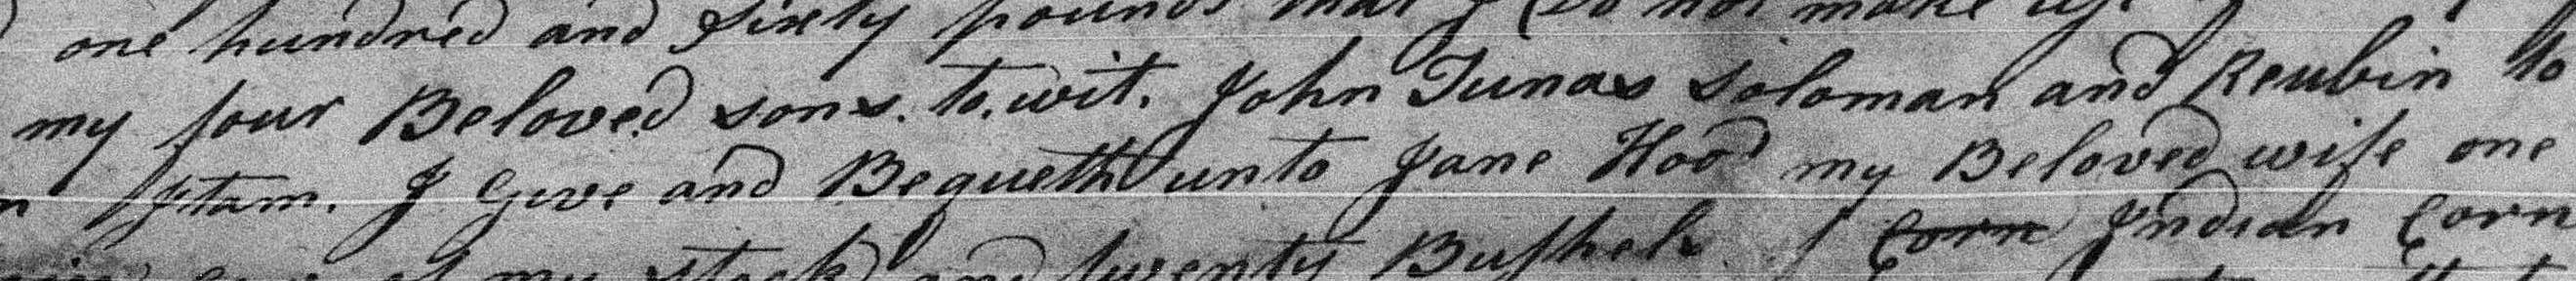 one hundred and Sixty pounds that I Do not make
my four Beloved sons. to. wit. John Tunas Soloman and Reubin to
Itam. I Give and Bequeth unto Jane Hood my Beloved wife one
of my stock and twenty Bushels of Corn Indian Corn